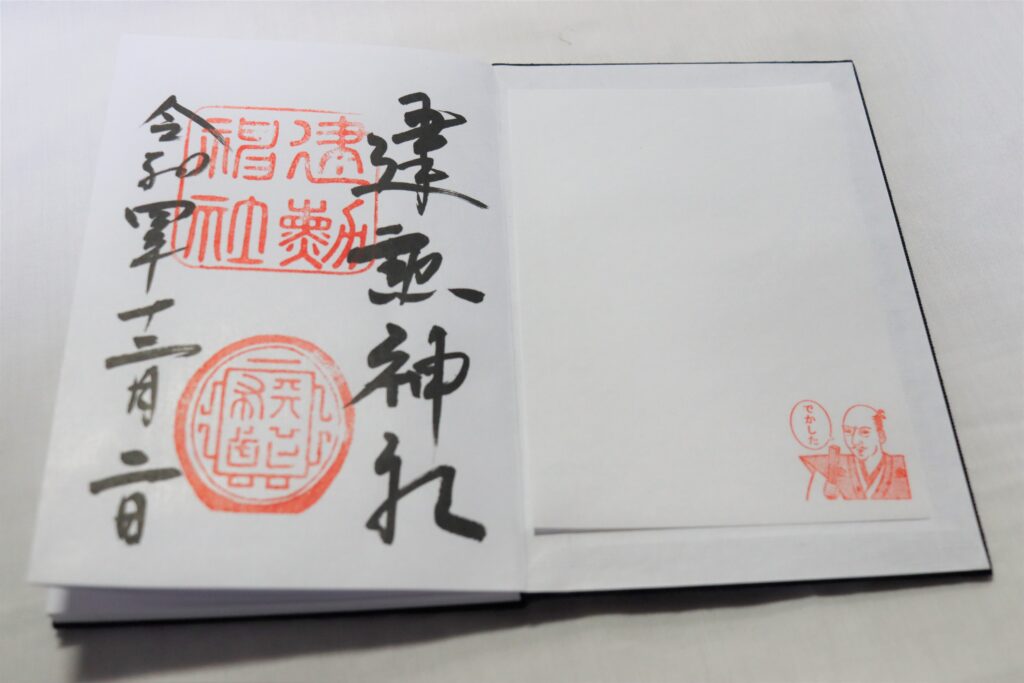 でかした
建勲神社
建勲
神社
令和四年十二月二日